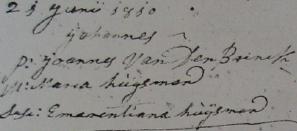 21 Junii 1810
Johannes
P: Joannes Van Den Brinck
M: Maria huijsmans
Susc: Emerentiana huijsmans